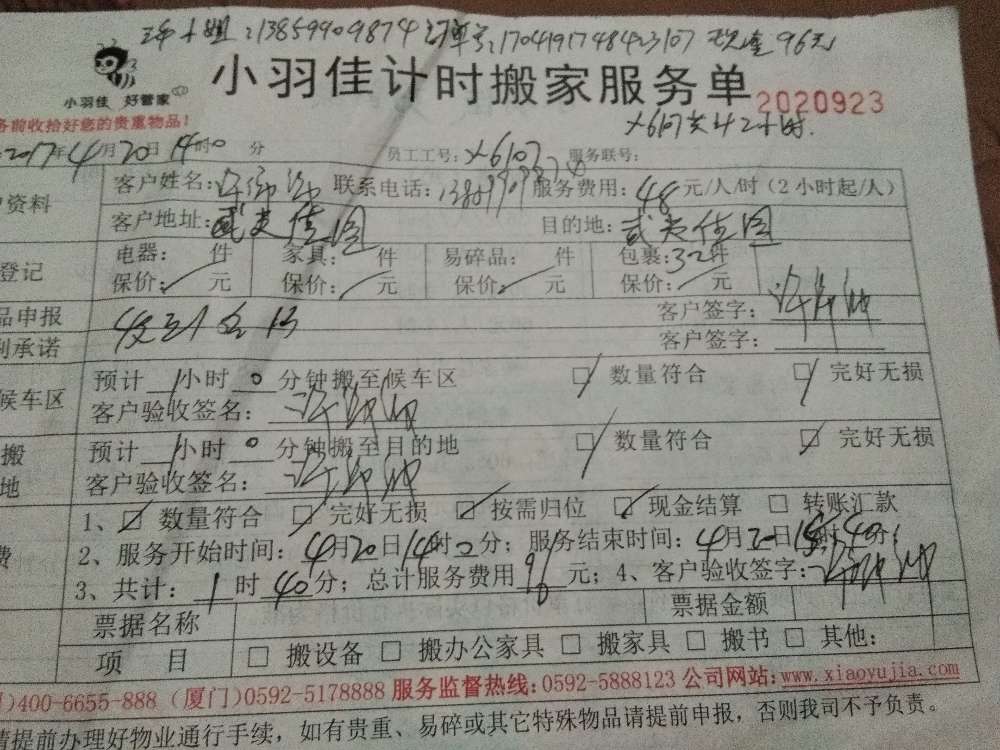 小姐:13859909874 订单号:1704191748423107 现金96元
小羽佳 好管家
小羽佳计时搬家服务单 2020923
务前收拾好您的贵重物品! X6107共计2小时.
2017年4月20日14时0分 员工工号:X6107 服务联号:
户资料 客户姓名: 联系电话: 服务费用:48元/人/时(2小时起/人)
客户地址:武夷佳园 目的地:武夷佳园
登记 电器: 件 家具: 件 易碎品: 件 包裹:32件
保价: 元 保价: 元 保价: 元 保价: 元
品申报 客户签字:
利承诺 客户签字:
候车区 预计1小时0分钟搬至候车区 □ 数量符合 □ 完好无损
客户验收签名:
搬地 预计1小时0分钟搬至目的地 □ 数量符合 □ 完好无损
客户验收签名:
1、☑ 数量符合 ☑ 完好无损 ☑ 按需归位 ☑ 现金结算 □ 转账汇款
费 2、服务开始时间:4月20日14时0分;服务结束时间:4月20日15时40分;
3、共计:1时40分;总计服务费用96元;4、客户验收签字:
票据名称 票据金额
项 目 □ 搬设备 □ 搬办公家具 □ 搬家具 □ 搬书 □ 其他:
)400-6655-888(厦门)0592-5178888 服务监督热线:0592-5888123 公司网站:www.xiaoyujia.com
请提前办理好物业通行手续,如有贵重、易碎或其它特殊物品请提前申报,否则我司不予负责。